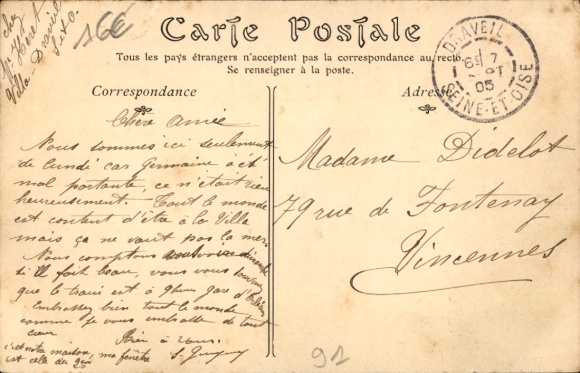 chez
Mr Huet
Villa - Draveil
S et O.
16€
Carte Postale
Tous les pays étrangers n'acceptent pas la correspondance au recto.
Se renseigner à la poste.
DRAVEIL
6E 7
05
SEINE-ET-OISE
Correspondance
Adresse
Chère amie
Nous sommes ici seulement
de lundi car Germaine a été
mal portante, ce n'était rien
heureusement. Tout le monde
est content d'être à la Villa
mais ça ne vaut pas la mer.
Nous comptons dimanche
s'il fait beau, vous vous
que le train est à 9 heures gare d'Orléans
Embrassez bien tout le monde
comme je vous embrasse de tout
cœur
Bien à vous.
c'est notre maison, ma fenêtre
est celle du 2em
Madame Didelot
79 rue de Fontenay
Vincennes
91